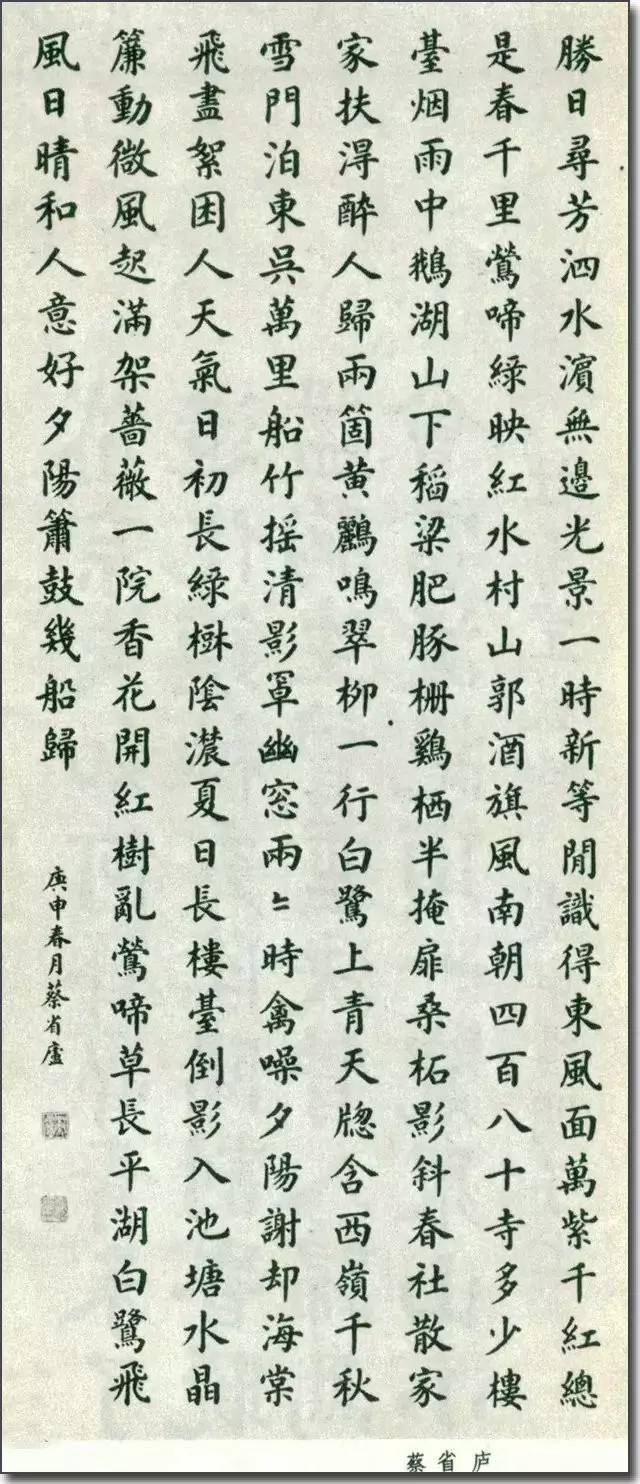 勝日尋芳泗水濵無邊光景一時新等閒識得東風面萬紫千紅總
是春千里鶯啼綠映紅水村山郭酒旗風南朝四百八十寺多少樓
臺烟雨中鵝湖山下稻粱肥豚栅鷄栖半掩扉桑柘影斜春社散家
家扶淂醉人歸兩箇黄鸝鳴翠柳一行白鷺上青天牕含西嶺千秋
雪門泊東吳萬里船竹摇清影罩幽窓兩〻時禽噪夕陽謝却海棠
飛盡絮困人天氣日初長綠樹陰濃夏日長樓臺倒影入池塘水晶
簾動微風起滿架薔薇一院香花開紅樹亂鶯啼草長平湖白鷺飛
風日晴和人意好夕陽簫鼓幾船歸
庚申春月蔡省廬
蔡省庐